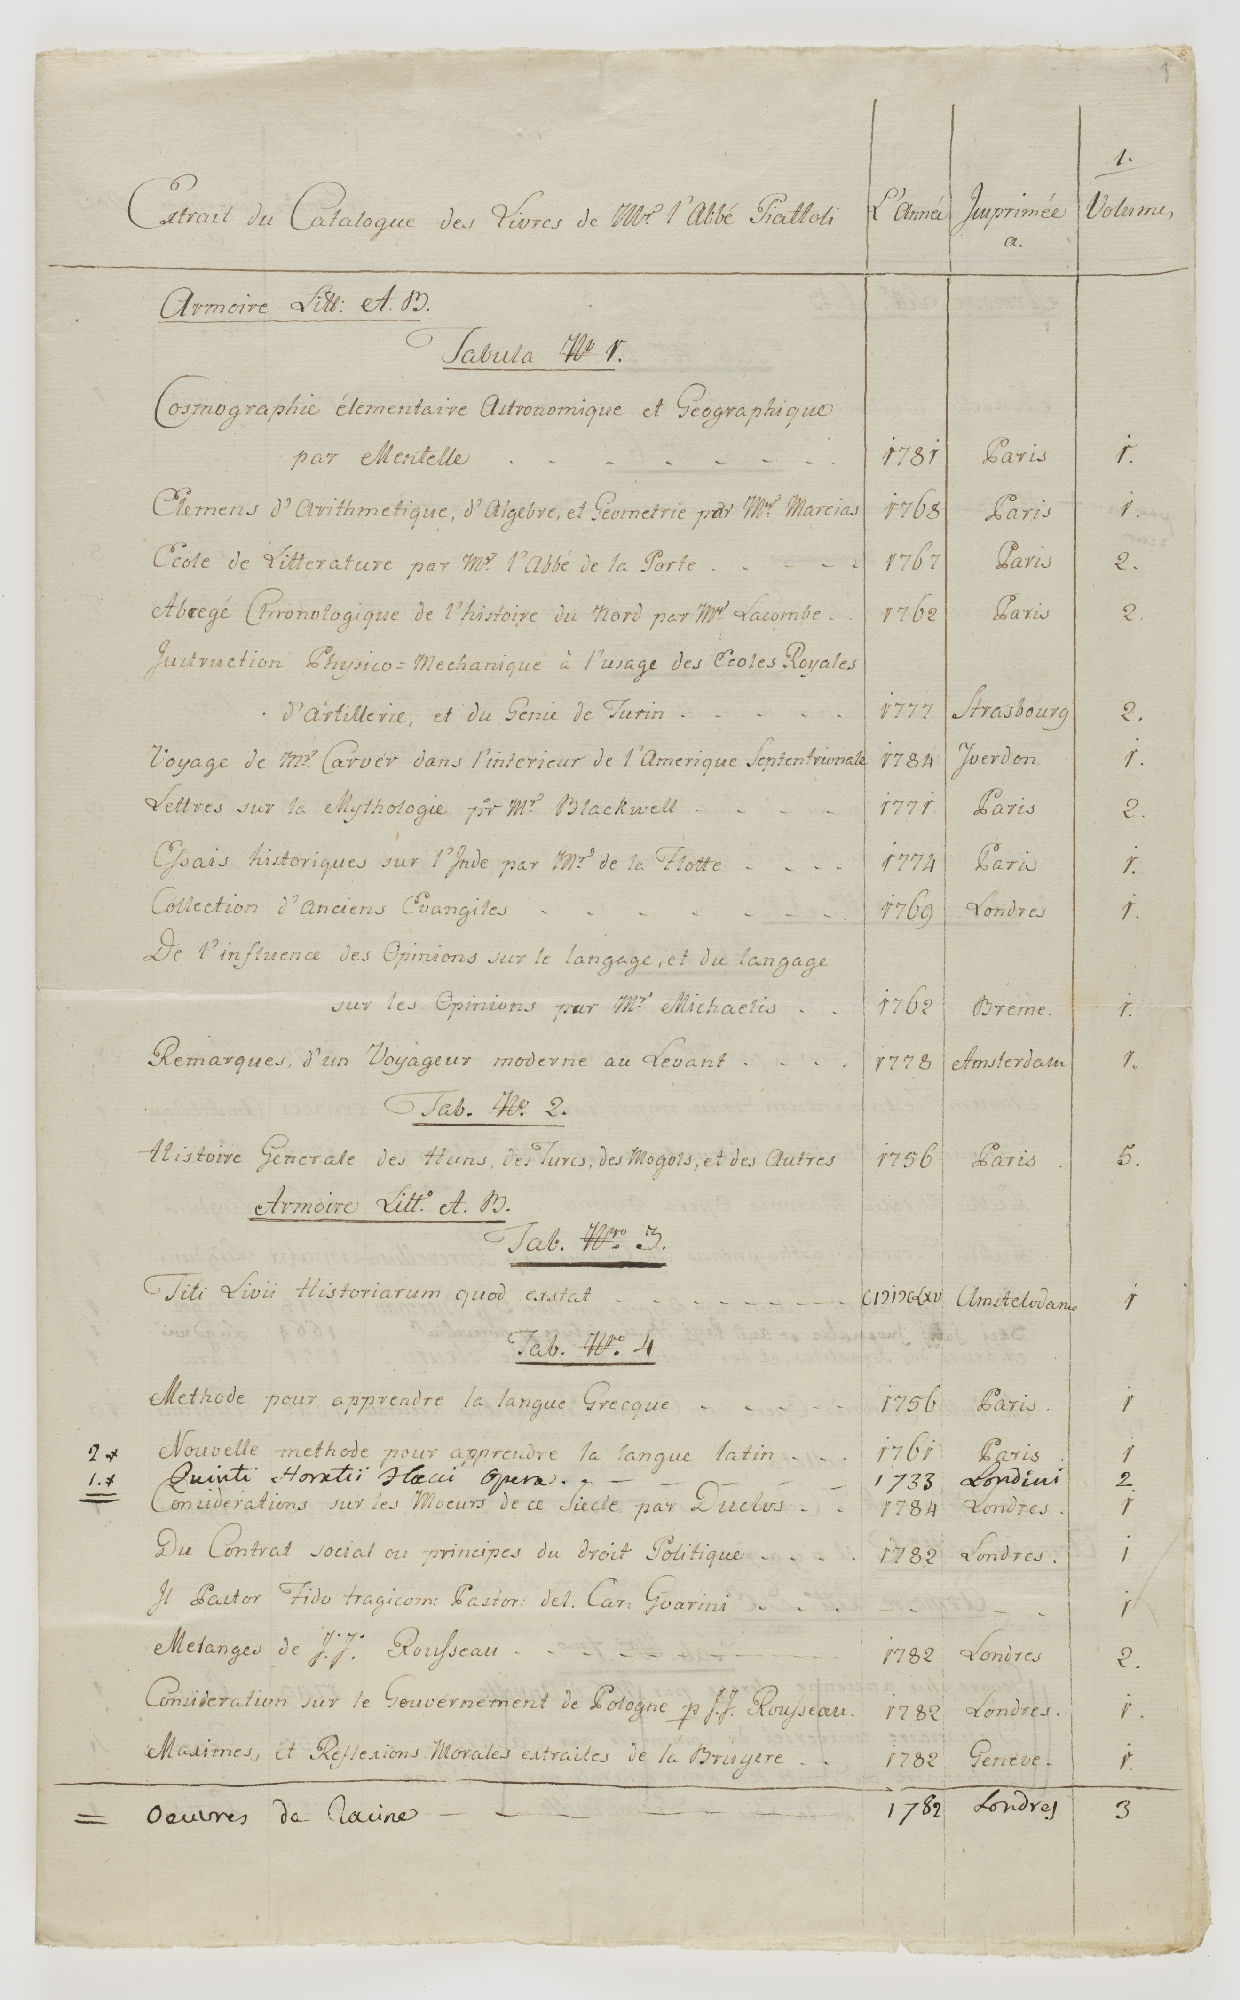 1
1.
Extrait du Catalogue des Livres de Mr. l'Abbé Piattoli L'Année Imprimée a. Volume,
Armoire Litt: A. B.
Tabula No 1.
Cosmographie élementaire Astronomique et Geographique
par Mentelle . - - - - - - - 1781 Paris 1.
Elemens d'Arithmetique, d'Algebre, et Geometrie par Mr. Marcias 1768 Paris 1.
Ecole de Litterature par Mr. l'Abbé de la Porte . - - - - 1767 Paris 2.
Abregé Chronologique de l'histoire du Nord par Mr. Lacombe . . 1762 Paris 2.
Instruction Physico=Mechanique à l'usage des Ecoles Royales
d'Artillerie, et du Genie de Turin . - - - - 1777 Strasbourg 2.
Voyage de Mr. Carver dans l'interieur de l'Amerique Septentrionale 1784 Yverdon 1.
Lettres sur la Mythologie par Mr. Blackwell - - - - 1771 Paris 2.
Essais historiques sur l'Inde par Mr. de la Flotte - - - - 1774 Paris 1.
Collection d'Anciens Evangiles - - - - - - - 1769 Londres 1.
De l'influence des Opinions sur le langage, et du langage
sur les Opinions par Mr. Michaelis . . 1762 Breme. 1.
Remarques, d'un Voyageur moderne au Levant - - - - 1778 Amsterdam 1.
Tab. No. 2.
Histoire Generale des Huns, des Turcs, des Mogols, et des Autres 1756 Paris . 5.
Armoire Litt. A. B.
Tab. Nro. 3.
Titi Livii Historiarum quod exstat - - - - - - - Amstelodamo 1
Tab. Nro. 4
Methode pour apprendre la langue Grecque - - - - 1756 Paris . 1
2* Nouvelle methode pour apprendre la langue latin - - - 1761 Paris . 1
1.* Quinti Horatii Flacci Opera . - - - 1733 Londini 2
Considerations sur les Moeurs de ce Siecle par Duclos - - 1784 Londres . 1
Du Contrat social ou principes du droit Politique - - - - 1782 Londres . 1
Il Pastor Fido tragicom: Pastor: del. Car: Gvarini - - - - - - 1
Melanges de J. J. Rousseau - - - - - - 1782 Londres 2.
Consideration sur le Gouvernement de Pologne p J. J. Rousseau. 1782 Londres . 1.
Maximes, et Reflexions Morales extraites de la Bruyere - - 1782 Geneve . 1.
= Oeuvres de Racine - - - - - - 1782 Londres 3